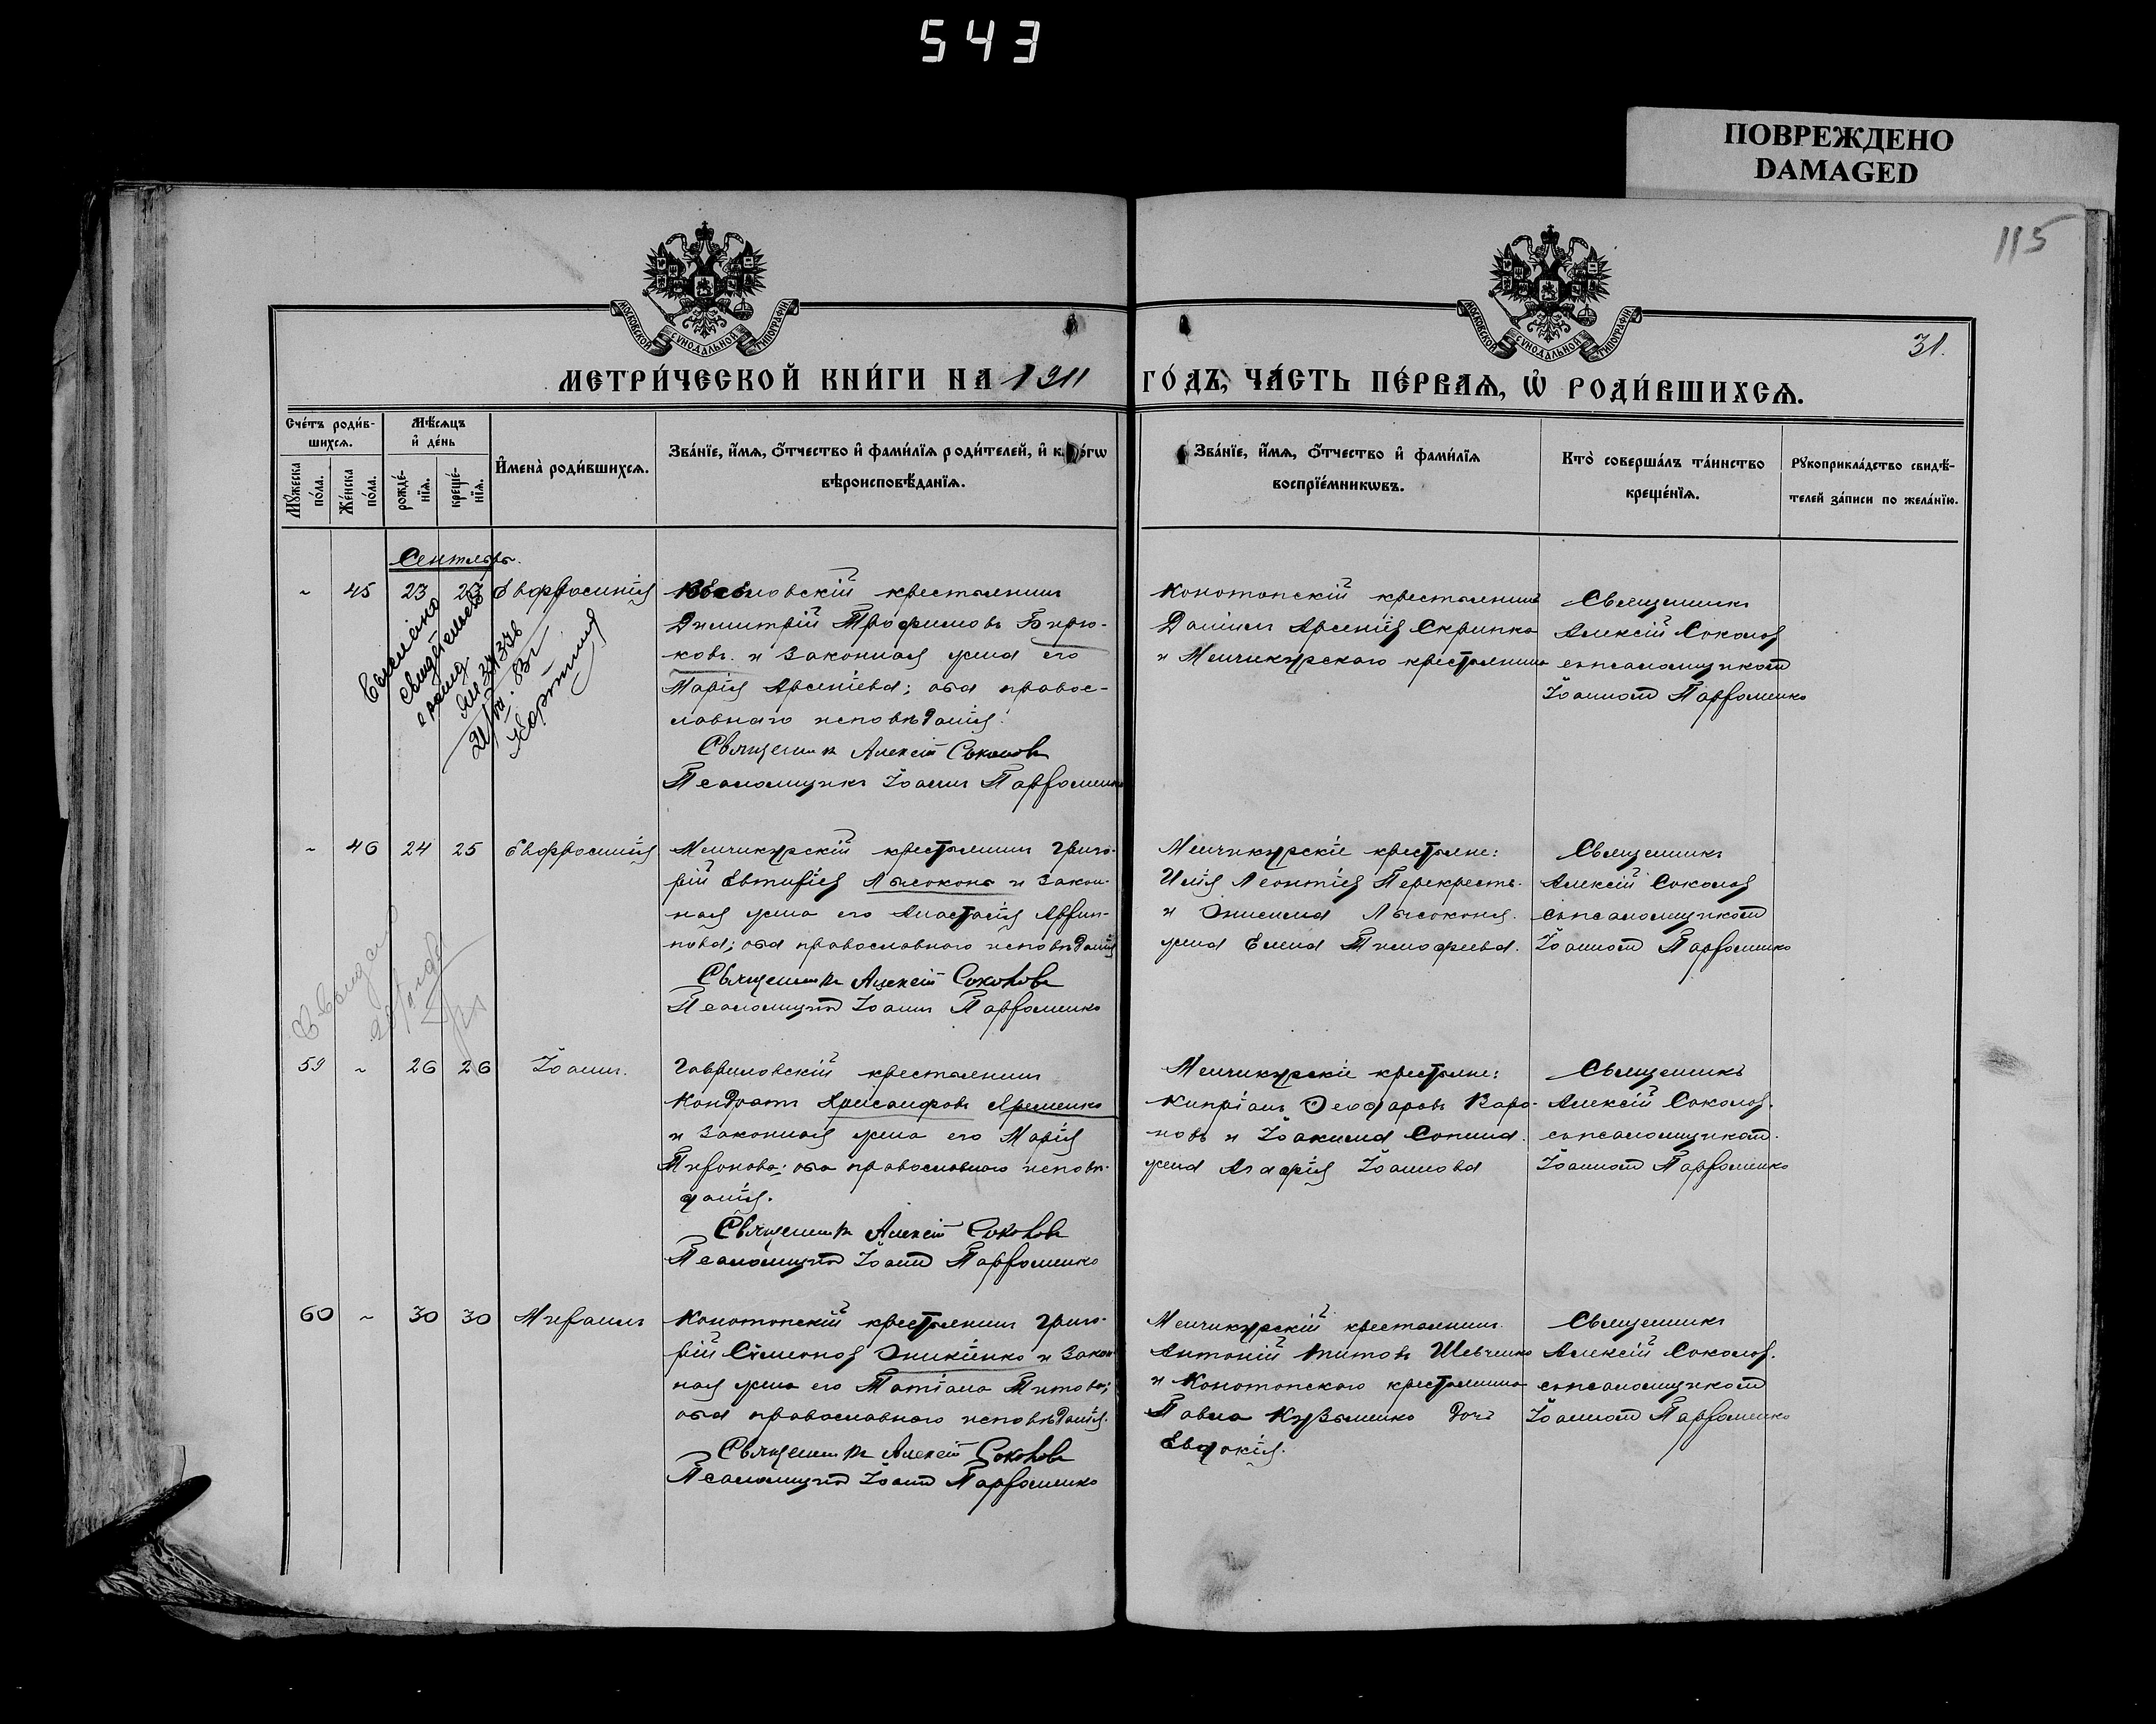 543
ПОВРЕЖДЕНО
DAMAGED
115
МОСКОВСКОЙ СѴНОДАЛЬНОЙ ТИПОГРАФІИ
МОСКОВСКОЙ СѴНОДАЛЬНОЙ ТИПОГРАФІИ
31.
МЕТРИ́ЧЕСКОЙ КНИ́ГИ НА 1911 ГО́ДЪ, ЧА́СТЬ ПЕ́РВАѦ, Ѡ҆ РОДИ́ВШИХСѦ.
Сче́тъ роди́в-
шихсѧ.
Мѣ́сѧцъ
и҆ де́нь
Мꙋ́жеска
по́ла.
Же́нска
по́ла.
рожде́-
нїѧ.
креще́-
нїѧ.
И҆мена̀ роди́вшихсѧ.
Зва́нїе, и҆́мѧ, ѻ҆́тчество и҆ фами́лїѧ роди́телей, и҆ ко́гѡ
вѣроисповѣ́данїѧ.
Зва́нїе, и҆́мѧ, ѻ҆́тчество и҆ фами́лїѧ
воспрїе́мникѡвъ.
Кто̀ соверша́лъ та́инство
креще́нїѧ.
Рꙋкоприкла́дство свидѣ́-
телей за́писи по жела́нїю.
Сентябрь.
~ 45 23 23 Евфросинія
крестьянинъ
Димитрій Трофимовъ Бирю-
ковъ и законная жена его
Марія Арсеніева; оба правос-
лавнаго исповѣданія.
Священникъ Алексій Соколовъ
Псаломщикъ Іоаннъ Парѳоменко
Конотопскій крестьянинъ
Даніилъ Арсеніевъ Скрипка
и Менчикурскаго крестьянина
Священникъ
Алексій Соколовъ
съ псаломщикомъ
Іоанномъ Парѳоменко
Выписано
свидѣтельство
~ 46 24 25 Евфросинія
Менчикурскій крестьянинъ Григо-
рій Евтихіевъ Лысоконь и закон-
ная жена его Анастасія
оба православнаго исповѣданія
Священникъ Алексій Соколовъ
Псаломщикъ Іоаннъ Парѳоменко
Менчикурскіе крестьяне:
Илія Леонтіевъ Перекрестъ
и Онисима Лысоконя
жена Елена Тимофеева.
Священникъ
Алексій Соколовъ
съ псаломщикомъ
Іоанномъ Парѳоменко
59 ~ 26 26 Іоаннъ.
Гавриловскій крестьянинъ
Кондратъ Александровъ Яременко
и законная жена его Марія
Тихонова; оба православнаго исповѣ-
данія.
Священникъ Алексій Соколовъ
Псаломщикъ Іоаннъ Парѳоменко
Менчикурскіе крестьяне:
Кипріанъ Ѳеофаровъ Варо-
новъ и Іоакима Сопина
жена Агафія Іоаннова
Священникъ
Алексій Соколовъ.
съ псаломщикомъ.
Іоанномъ Парѳоменко
60 ~ 30 30 Михаилъ
Конотопскій крестьянинъ Григо-
рій Симеоновъ Оникіенко и закон-
ная жена его Татіана Титова;
оба православнаго исповѣданія.
Священникъ Алексій Соколовъ
Псаломщикъ Іоаннъ Парѳоменко
Менчикурскій крестьянинъ
Антоній Титовъ Шевченко
и Конотопскаго крестьянина
Павла Кузьменко дочь
Евдокія.
Священникъ
Алексій Соколовъ.
съ псаломщикомъ
Іоанномъ Парѳоменко